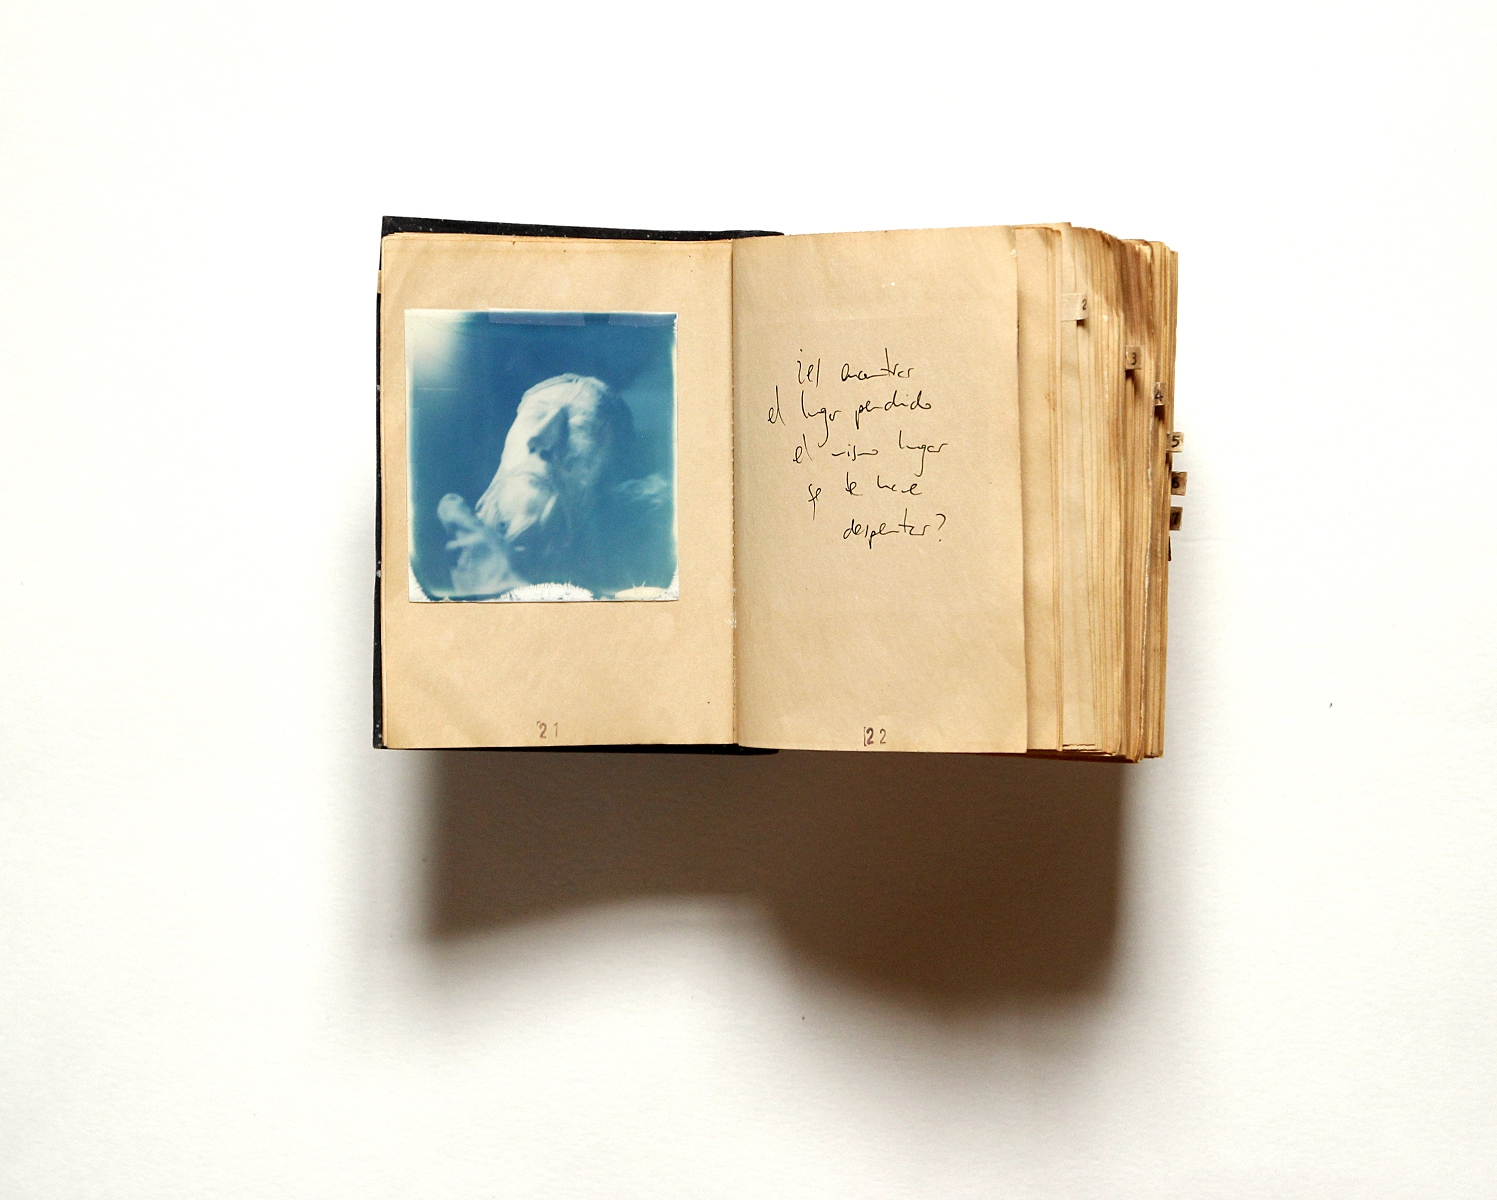 ¿el encontrar
el lugar perdido
el mismo lugar
se te hace
despertar?
21
22
2
3
4
5
6
7